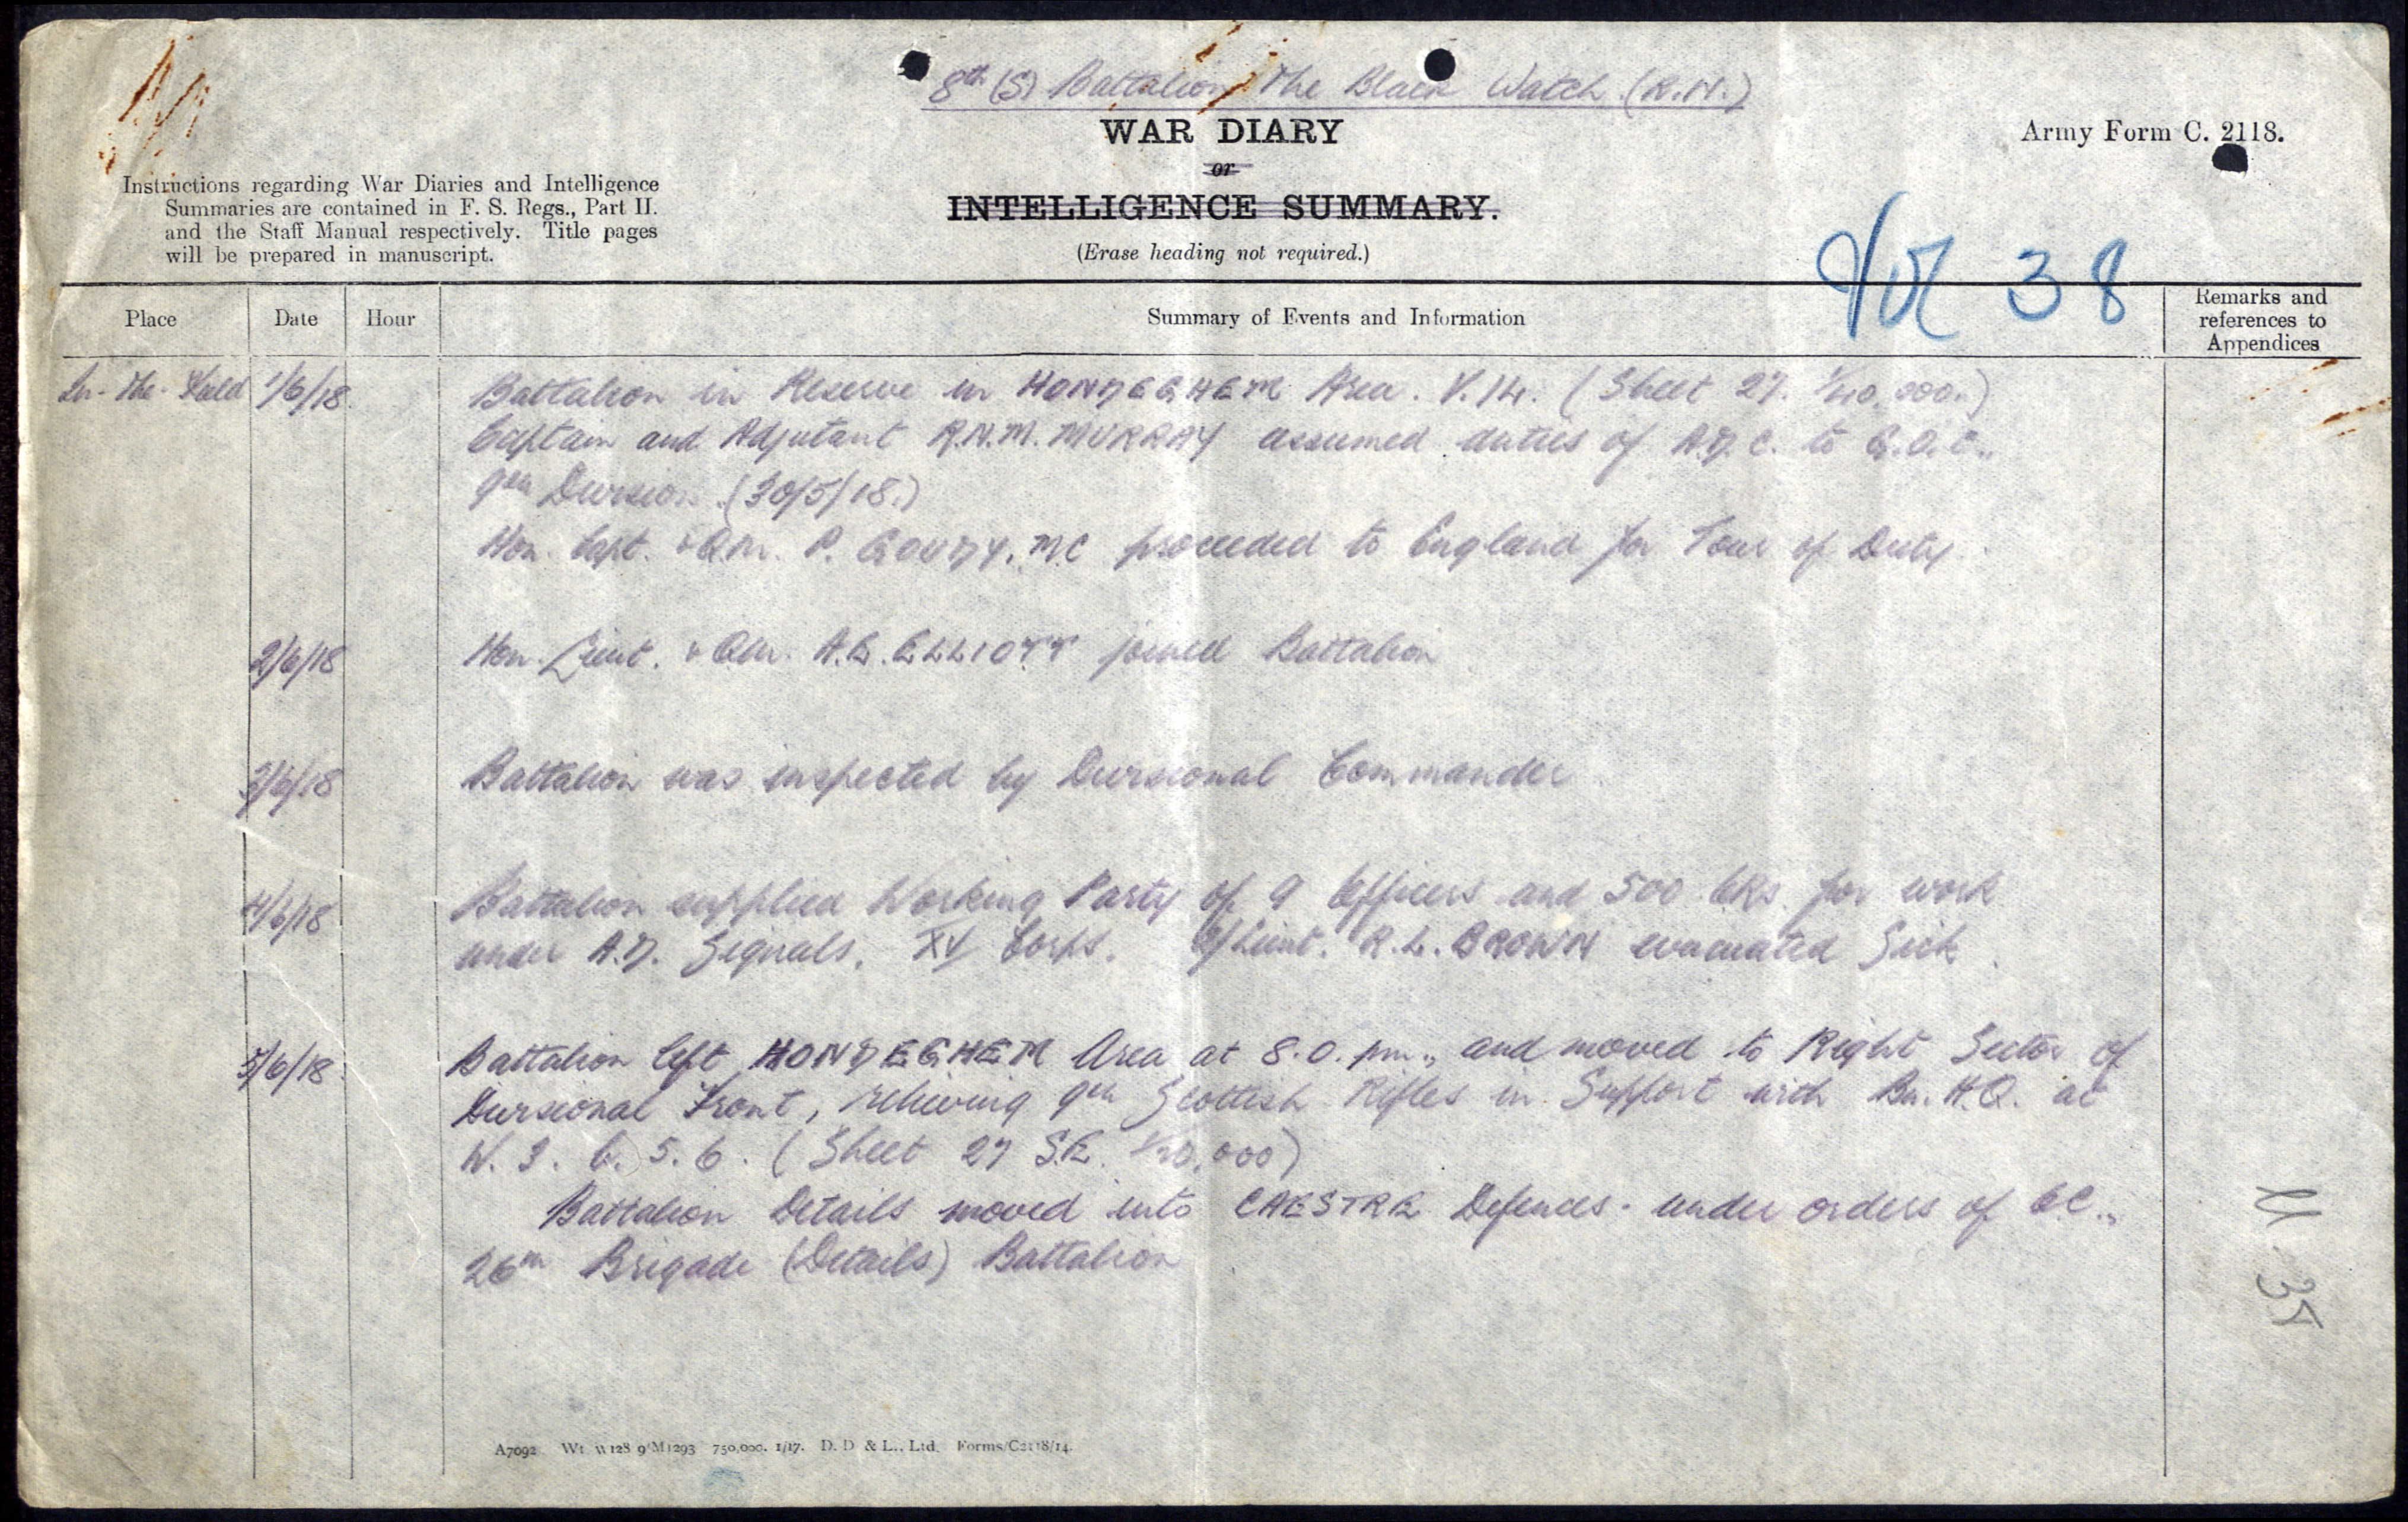 8th (S) Battalion The Black Watch (R.H.)
WAR DIARY
or
INTELLIGENCE SUMMARY.
(Erase heading not required.)
Army Form C. 2118.
Instructions regarding War Diaries and Intelligence
Summaries are contained in F. S. Regs., Part II.
and the Staff Manual respectively. Title pages
will be prepared in manuscript.
Vol 38
Place Date Hour Summary of Events and Information Remarks and references to Appendices
In-the-Field 1/6/18. Battalion in Reserve in HONDEGHEM Area. V.14. (Sheet 27. 1/40,000.)
Captain and Adjutant R.N.M. MURRAY assumed duties of A.D.C. to G.O.C.,
9th Division (30/5/18.)
Hon. Capt. & Q.M. P. GOUDY, M.C proceeded to England for Tour of Duty.
2/6/18 Hon. Lieut. & Qm. A.E. ELLIOTT joined Battalion
3/6/18 Battalion was inspected by Divisional Commander
4/6/18 Battalion supplied Working Party of 9 Officers and 500 ORs. for work
under A.D. Signals, XV Corps. Lieut. R.L. BROWN evacuated Sick.
5/6/18. Battalion left HONDEGHEM Area at 8.0. pm., and moved to Right Sector of
Divisional Front, relieving 9th Scottish Rifles in Support with Bn. H.Q. at
W. 3. b. 5. 6. (Sheet 27 S.E. 1/20,000)
Battalion Details moved into CAESTRE Defences - under orders of O.C.,
26th Brigade (Details) Battalion
35
A7092 Wt. W128 9/M1293 750,000. 1/17. D. D & L., Ltd. Forms/C2118/14.